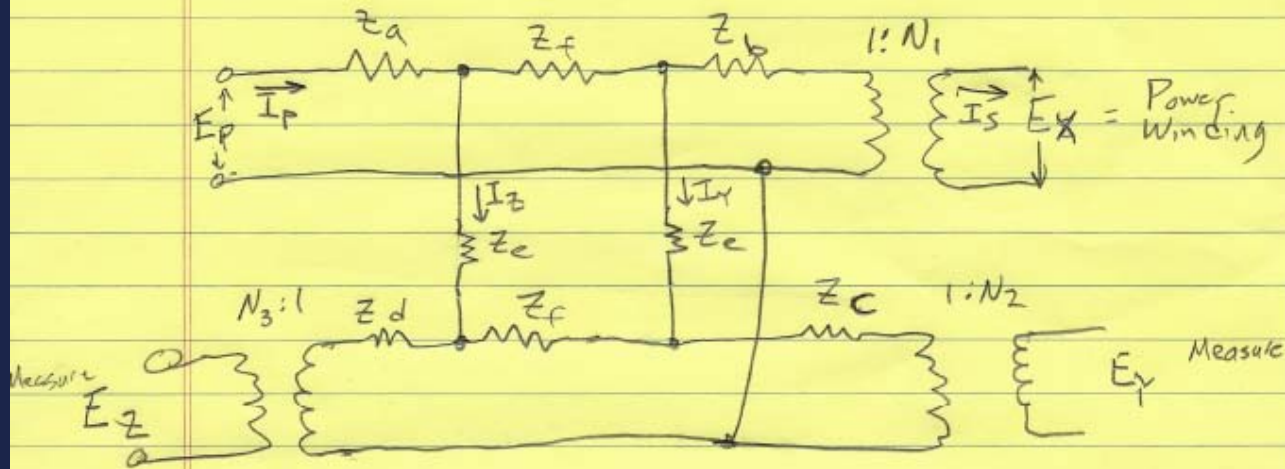 Za Zf Zb 1:N1
Ep Ip Is Ex = Power Winding
Iz Iy
Ze Ze
N3:1 Zd Zf Zc 1:N2
Measure Ez Ey Measure